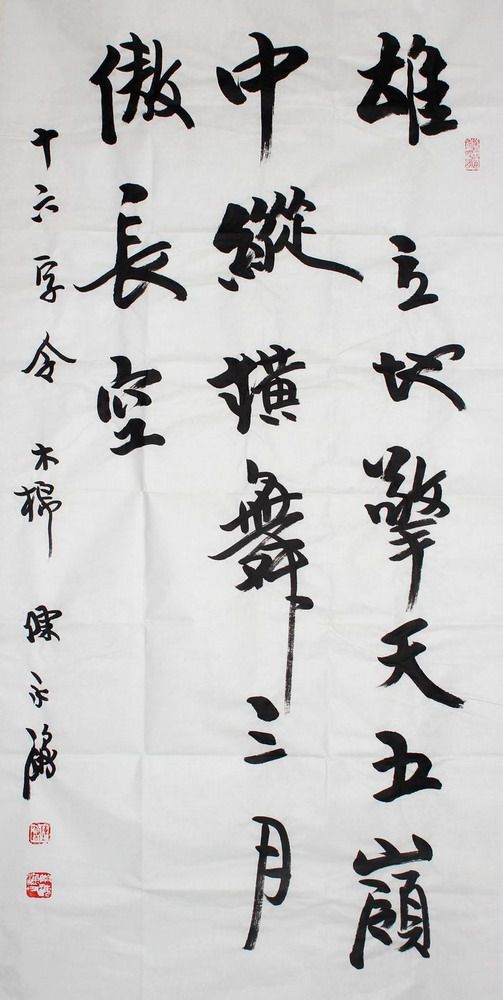 雄立地擎天五嶺
中縱橫舞三月
傲長空
十六字令 木棉 陳永